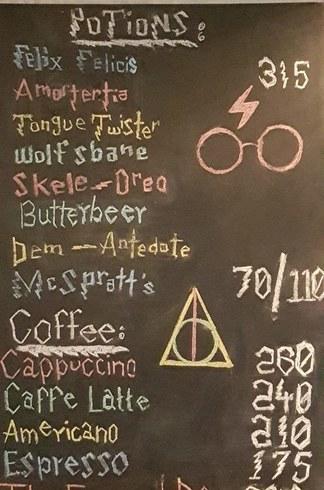 POTIONS:
Felix Felicis 315
Amortertia
Tongue Twister
Wolfsbane
Skele-Dreq
Butterbeer
Dem-Antedote
McSpratt's 70/110
Coffee:
Cappuccino 260
Caffe Latte 240
Americano 210
Espresso 175